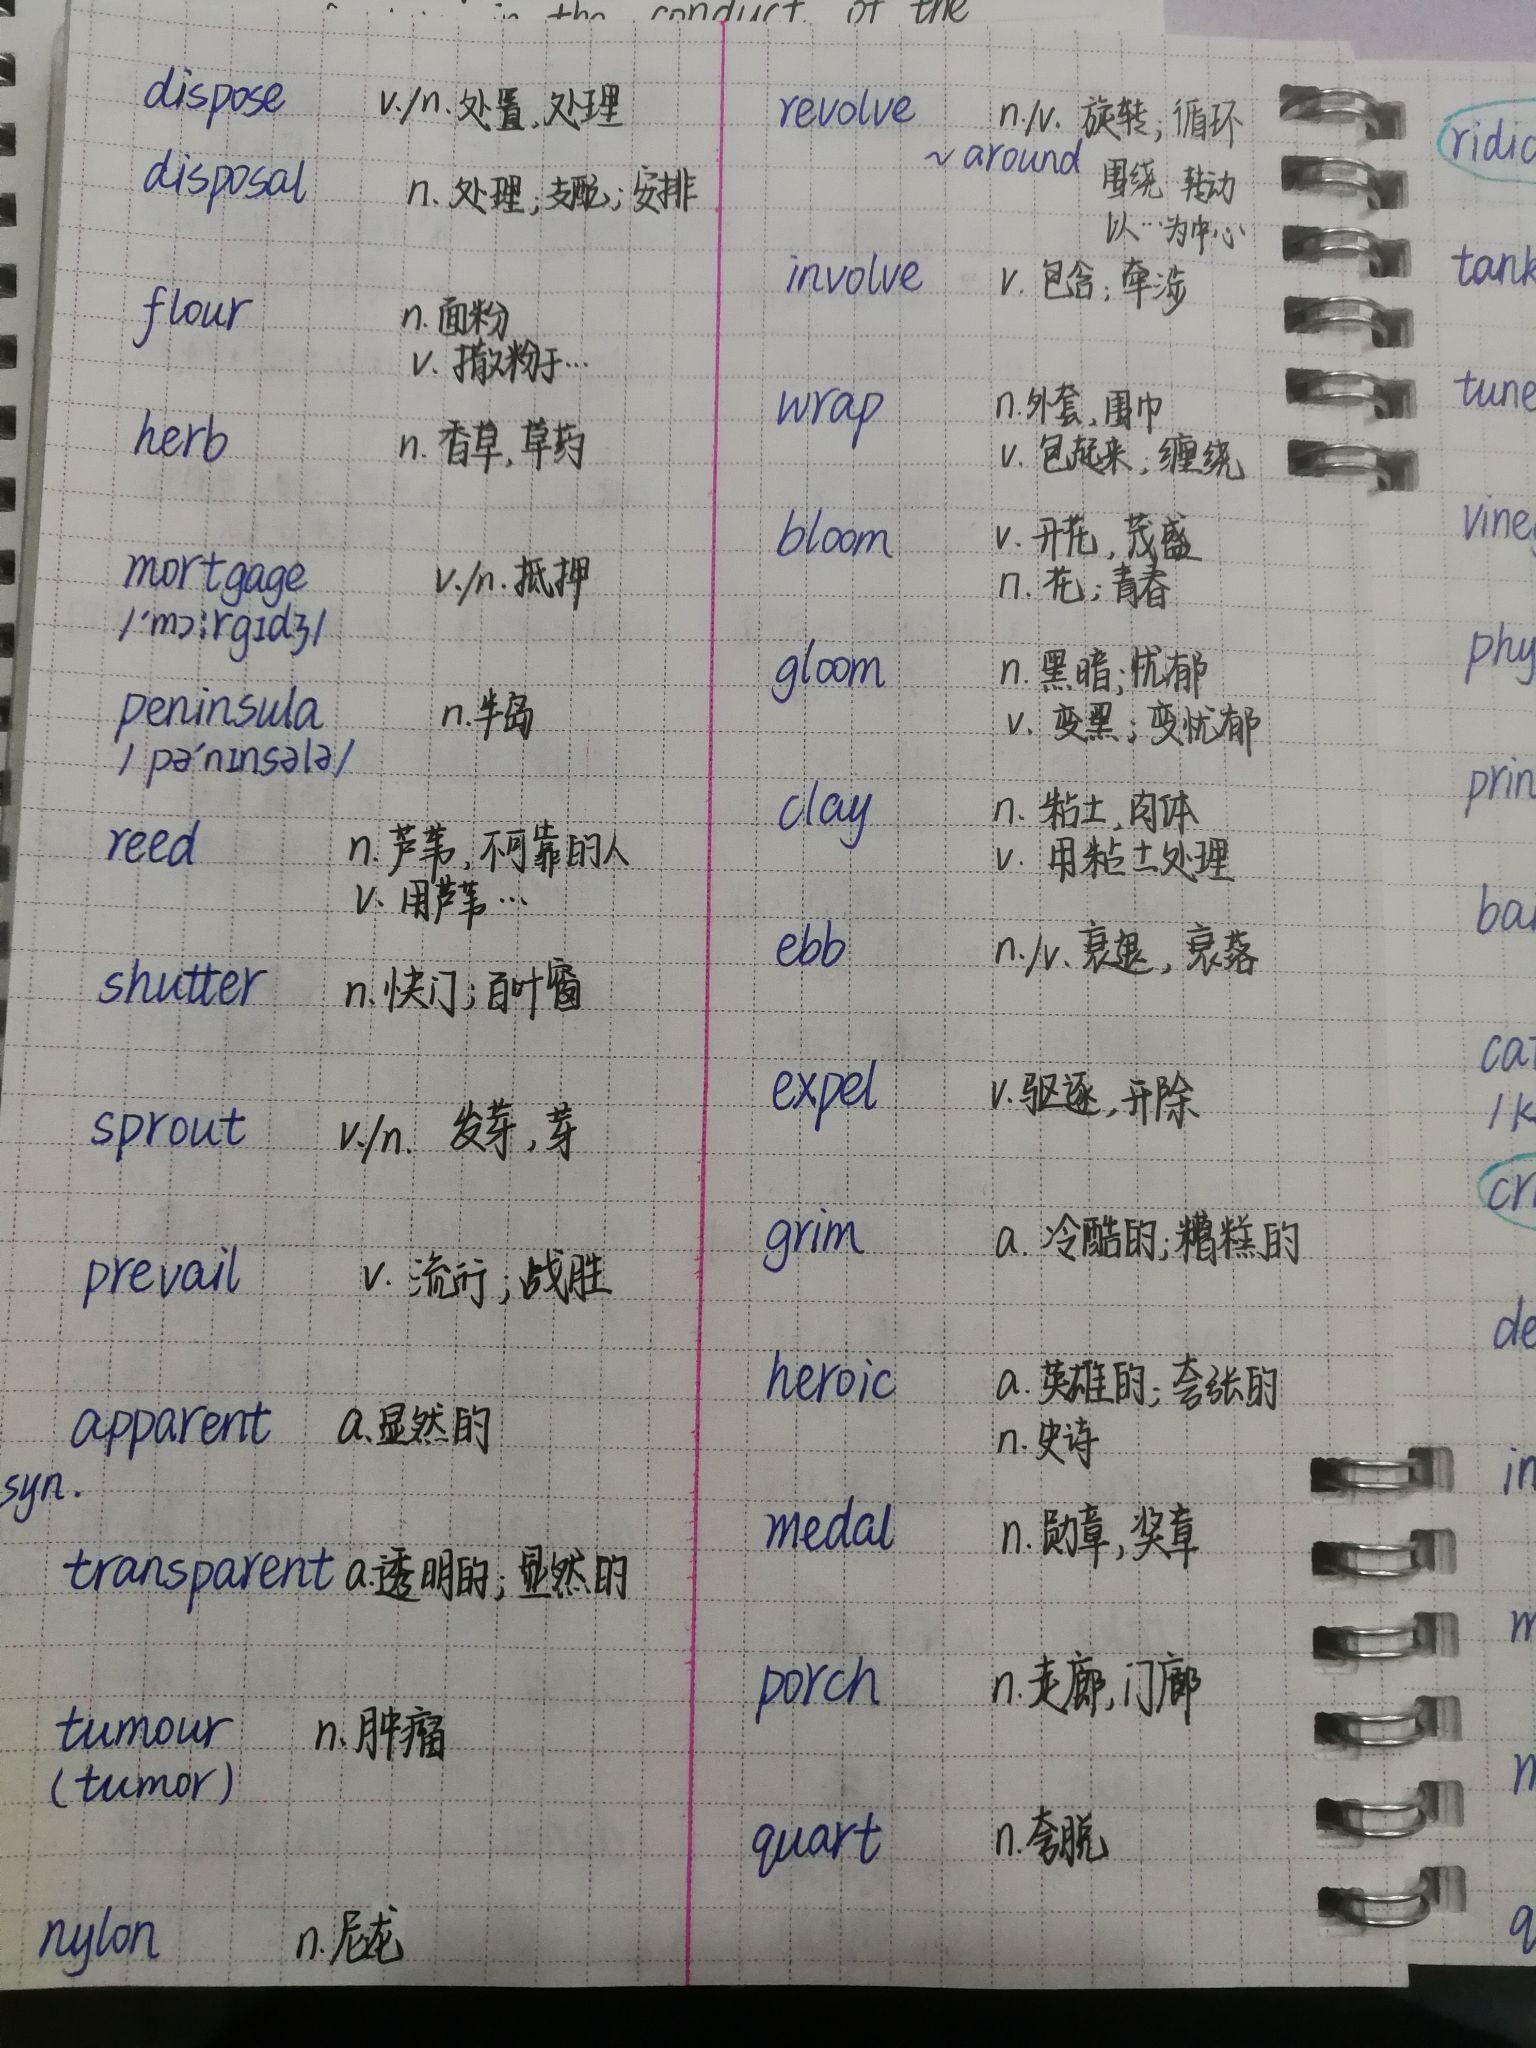 in the conduct of the
dispose v./n. 处置,处理
disposal n. 处理;支配;安排
flour n. 面粉
v. 撒粉于…
herb n. 香草,草药
mortgage v./n. 抵押
/ˈmɔːrgɪdʒ/
peninsula n. 半岛
/pəˈnɪnsələ/
reed n. 芦苇,不可靠的人
v. 用芦苇…
shutter n. 快门;百叶窗
sprout v./n. 发芽,芽
prevail v. 流行;战胜
apparent a. 显然的
syn.
transparent a. 透明的;显然的
tumour n. 肿瘤
(tumor)
nylon n. 尼龙
revolve n./v. 旋转;循环
~around 围绕 转动
以…为中心
involve v. 包含;牵涉
wrap n. 外套,围巾
v. 包起来;缠绕
bloom v. 开花,茂盛
n. 花;青春
gloom n. 黑暗;忧郁
v. 变黑;变忧郁
clay n. 粘土,肉体
v. 用粘土处理
ebb n./v. 衰退,衰落
expel v. 驱逐,开除
grim a. 冷酷的;糟糕的
heroic a. 英雄的;夸张的
n. 史诗
medal n. 勋章,奖章
porch n. 走廊,门廊
quart n. 夸脱
ridic
tank
tune
vine
phy
prin
ba
ca
/k
cr
de
in
m
q